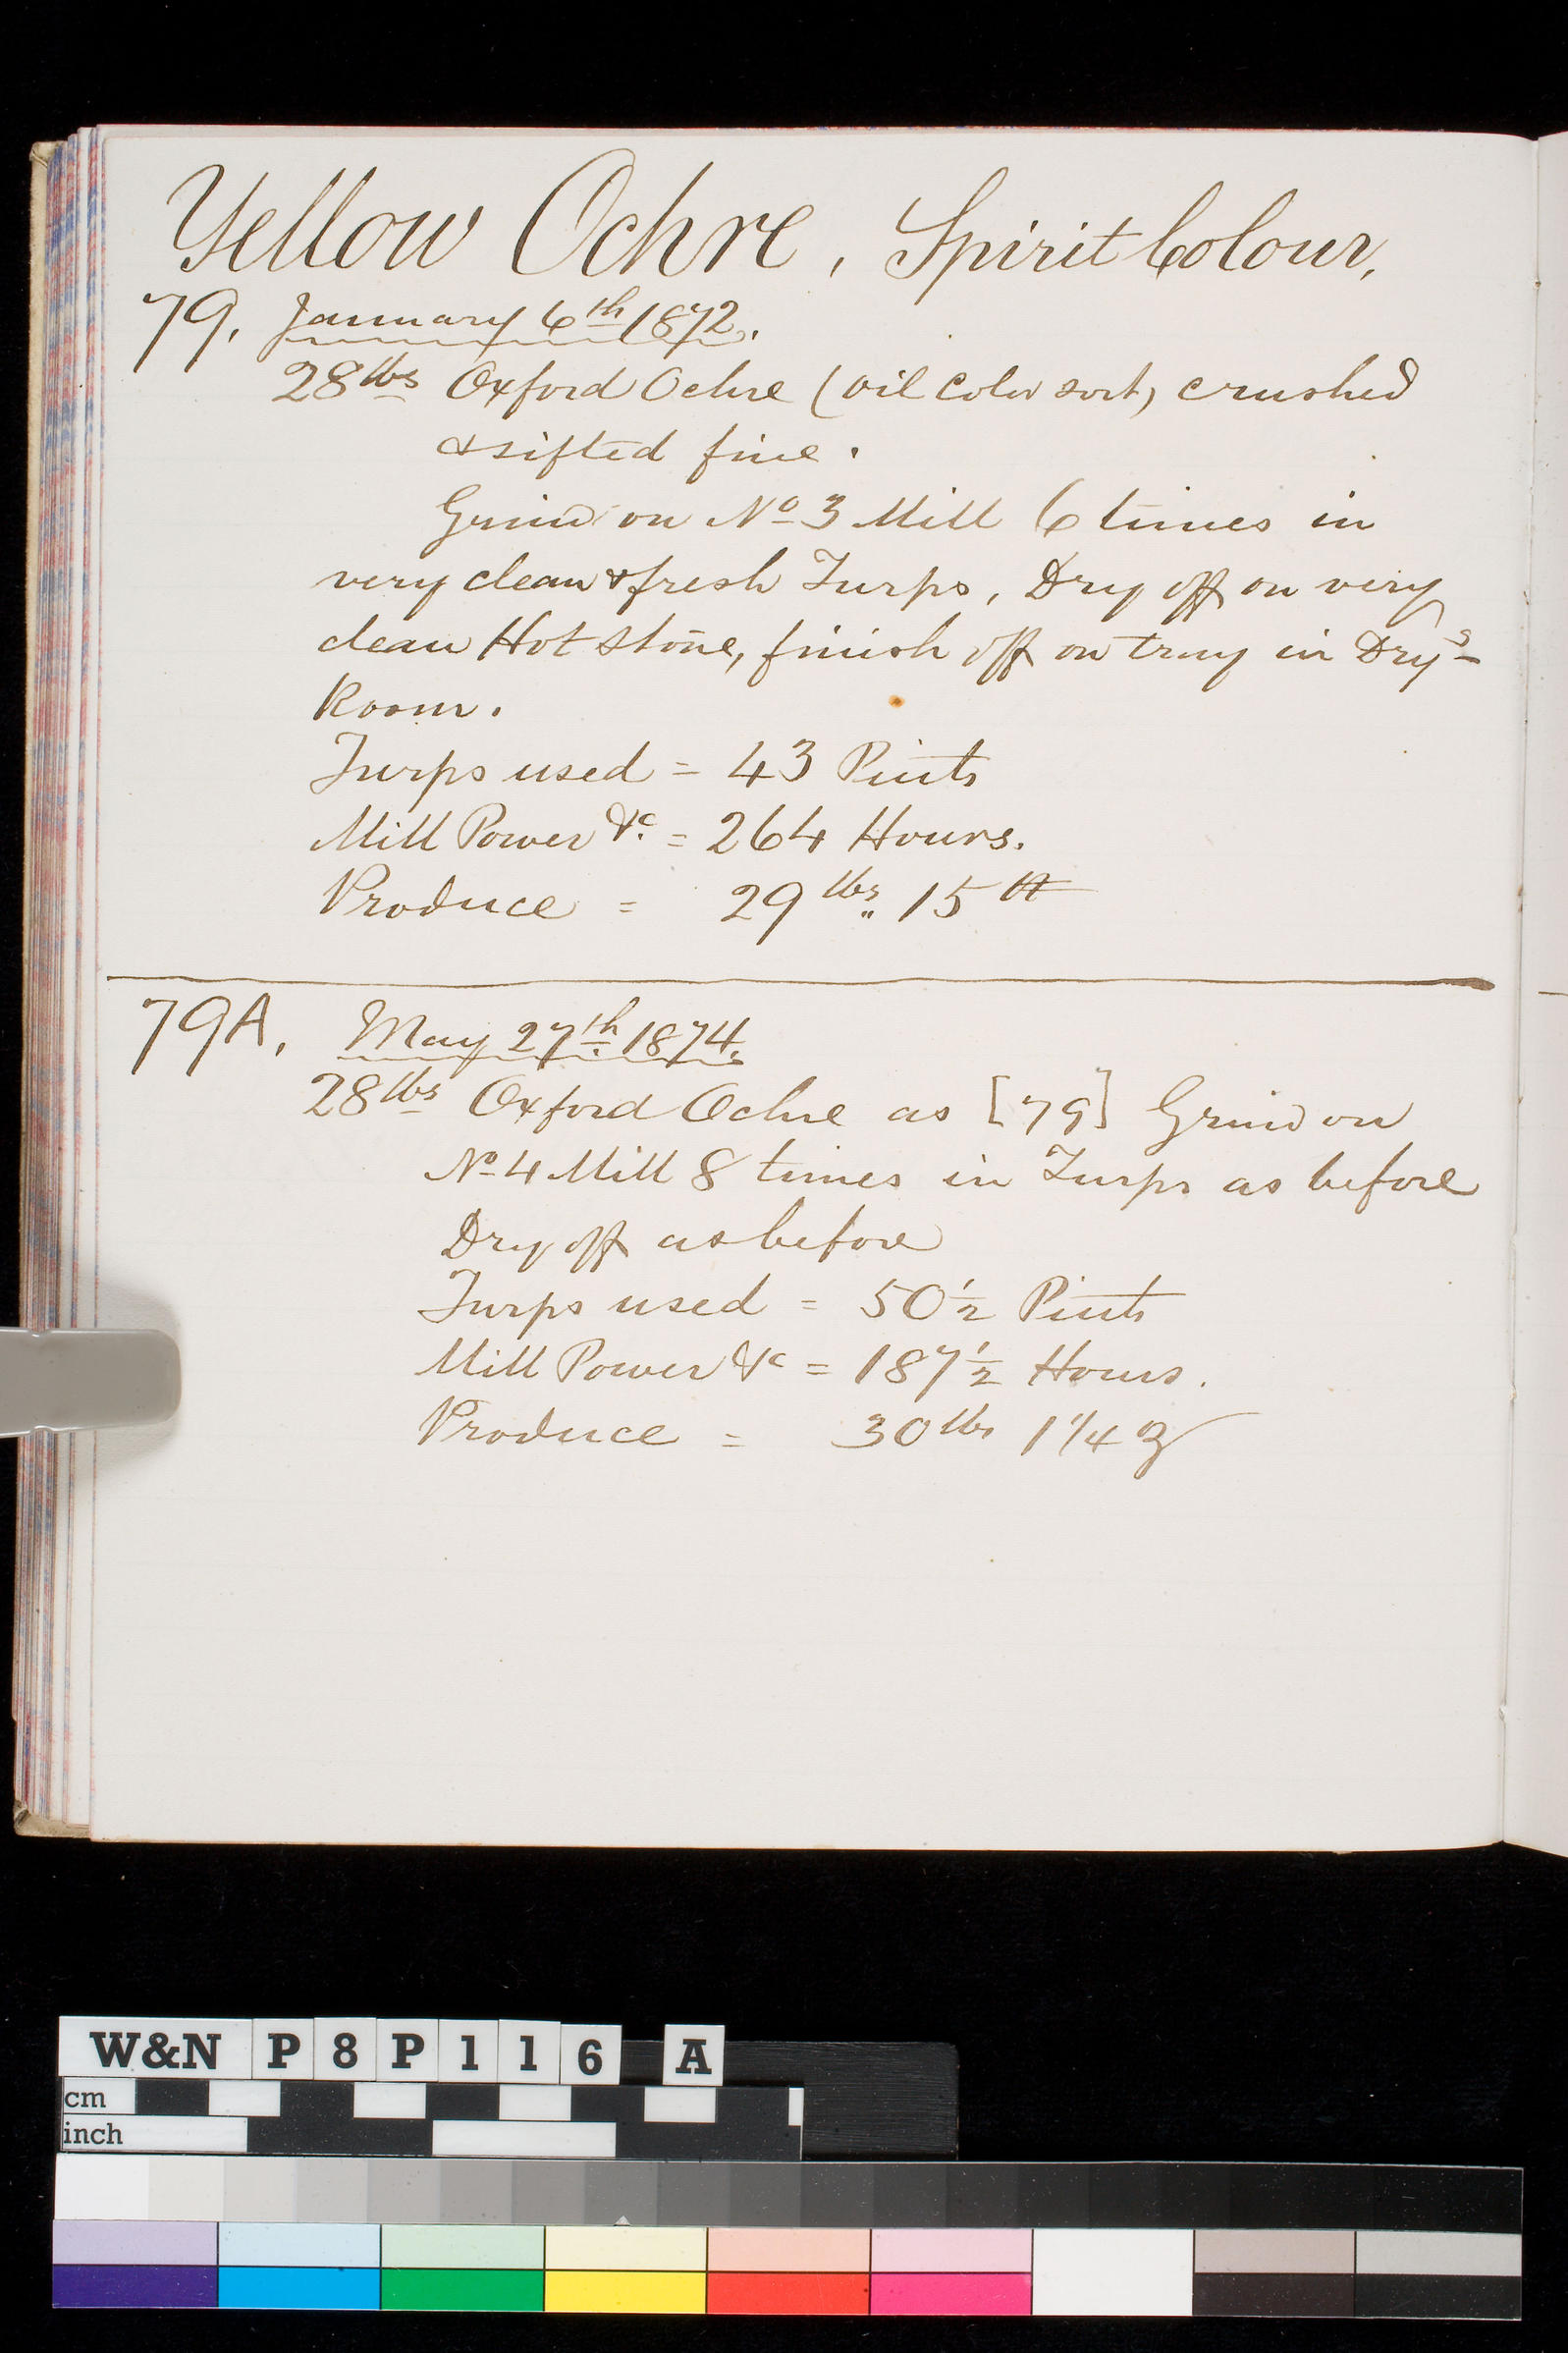 Yellow Ochre, Spirit Colour,
79. January 6th 1872.
28 lbs Oxford Ochre (oil color sort) crushed
& sifted fine.
Grind on No 3 Mill 6 times in
very clean & fresh Turps, Dry off on very
clean Hot stone, finish off on tray in Dryg
Room.
Turps used = 43 Pints
Mill Power &c. = 264 Hours.
Produce = 29 lbs 15
79A. May 27th 1874.
28 lbs Oxford Ochre as [79] Grind on
No 4 Mill 8 times in Turps as before
Dry off as before
Turps used = 50 1/2 Pints
Mill Power &c = 187 1/2 Hours.
Produce = 30 lbs 1 1/4 ℥
W&N P8P116 A
cm
inch